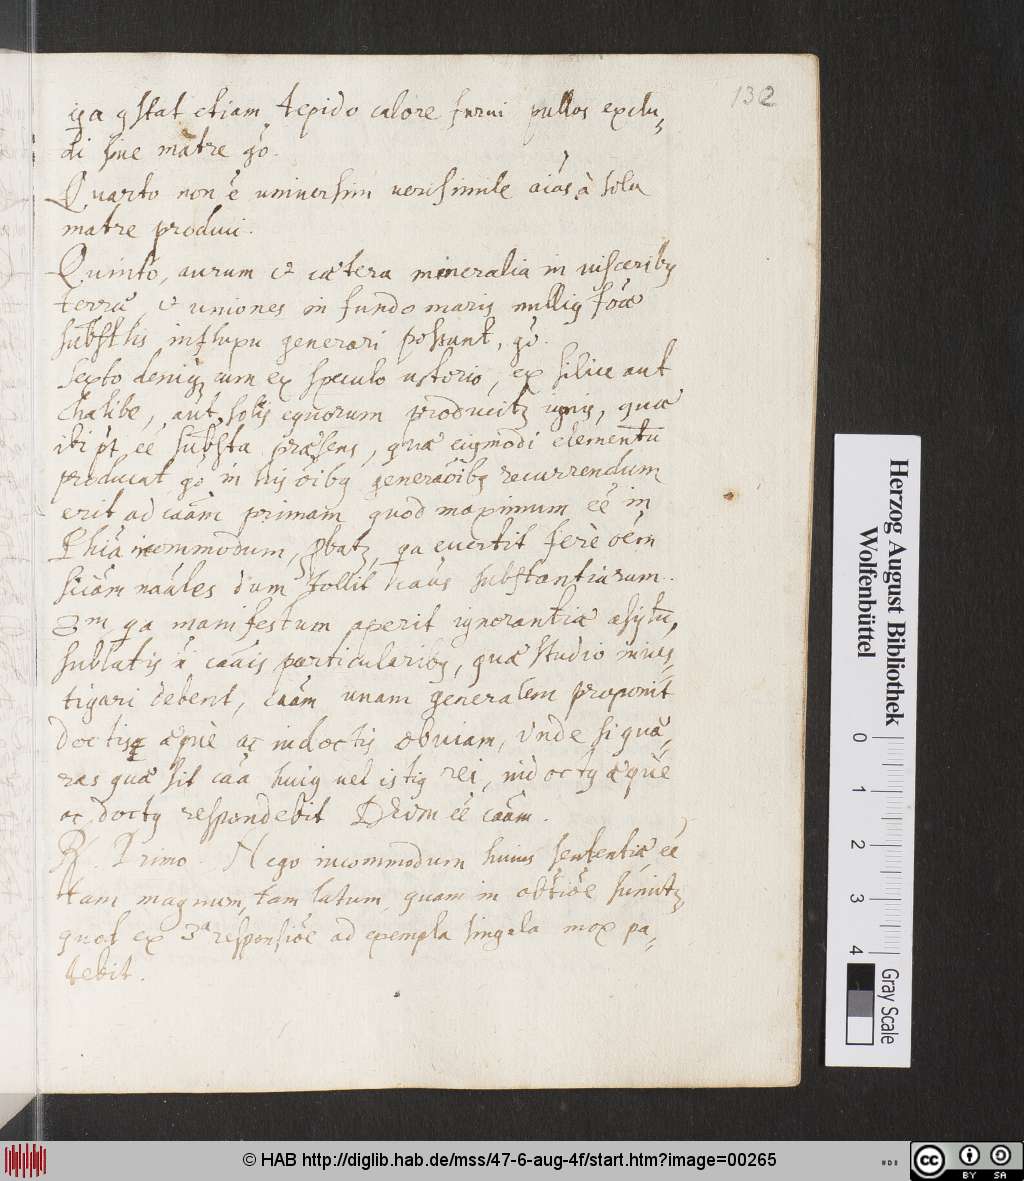 132
iga ꝯstat etiam tepido calore furni pullos exclu„
di sine matre gõ.
Quarto non ẽ universim verisimile aias à sola
matre produci.
Quinto, aurum et cætera mineralia in visceribꝰ
terræ, et uniones in fundo maris nulliꝰ foæ
subst̃lis influxu generari possunt, gõ.
Sexto deniqꝫ cum ex speculo ustorio, ex silice aut
chalibe, aut solis equorum producitꝫ ignis, quæ
ibi pt̃ ẽe subst̃a præsens, quæ eiꝰmodi elementũ
producat, gõ in his oĩbꝰ generaõibꝰ recurrendum
erit ad caãm primam quod maximum ẽe in
Phiã incommodum, ꝓbatꝫ, qa evertit ferè oẽm
sciãm naãles dum tollit caũs substantiarum.
3m qa manifestum aperit ignorantiæ asylũ,
sublatis n̄ caũis particularibꝰ, quæ studio inves„
tigari debent, caãm unam generalem proponit
doctis æquè ac indoctis obviam, unde si quæ„
ras quæ sit caã huiꝰ vel istiꝰ rei, indoctꝰ æquè
ac doctꝰ respondebit Deum ẽe caãm.
R. Primo. Nego incommodum huius sententiæ ẽe
tam magnum, tam latum, quam in obtiõe sumitꝫ
quod ex 3ª responsiõe ad exempla singula mox pa„
tebit.
Herzog August Bibliothek
Wolfenbüttel
0 1 2 3 4
Gray Scale
© HAB http://diglib.hab.de/mss/47-6-aug-4f/start.htm?image=00265
cc BY SA